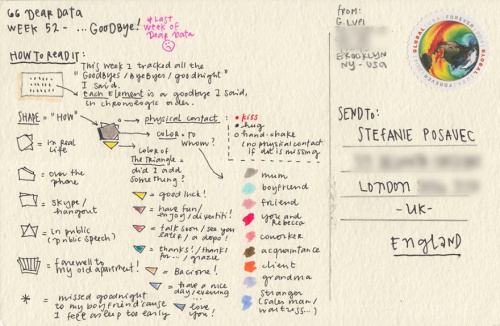 66 DEAR DATA
WEEK 52 - ... GOODBYE!
* LAST
WEEK OF
DEAR DATA
HOW TO READ IT:
"This week I tracked all the
GOODBYES / BYEBYES / goodnight"
I said.
each element is a goodbye I said,
in chronologic order.
SHAPE = "HOW"
in real
life
on the
phone
skype /
hangout
in public
(public speech)
farewell to
my old apartment!
* missed goodnight
to my boyfriend 'cause
I fell asleep too early
physical contact:
kiss
hug
hand-shake
(no physical contact
if dot is missing
COLOR = TO
WHOM?
COLOR OF
The TRIANGLE =
did I add
something?
good luck!
have fun /
enjoy / divertiti!
talk soon / see you
later / a dopo!
thanks! / thanks
for ... / grazie
Bacione!
have a nice
day / evening
love you!
mum
boyfriend
friend
you and
Rebecca
coworker
acquaintance
client
grandma
stranger
(sales man /
waitress...)
FROM:
G. LUPI
BROOKLYN
NY - USA
GLOBAL
FOREVER
SEND TO:
STEFANIE POSAVEC
LONDON
- UK -
ENGLAND